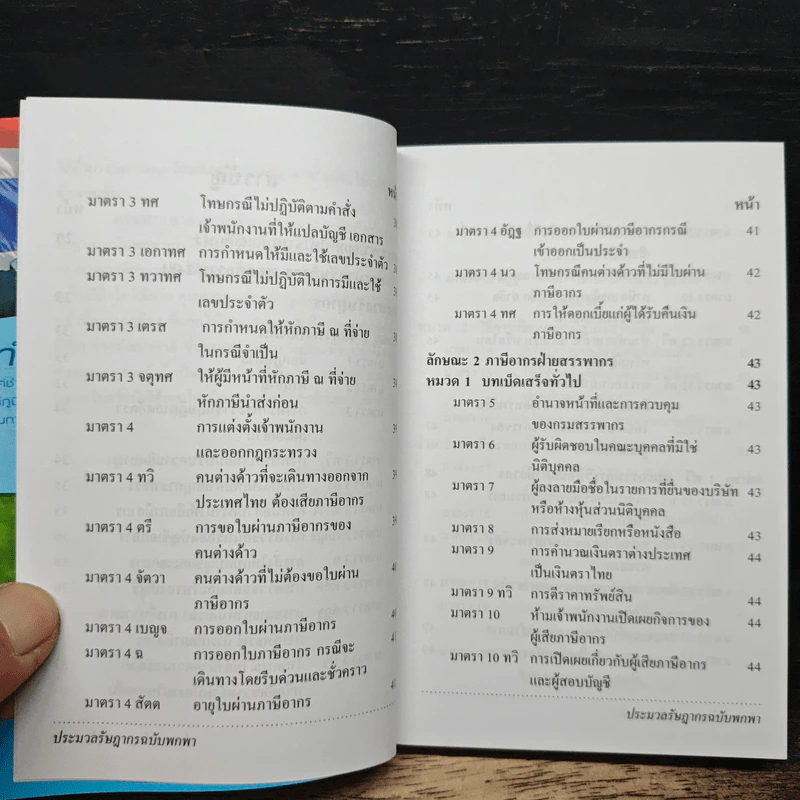 มาตรา 3 ทศ โทษกรณีไม่ปฏิบัติตามคำสั่ง
เจ้าพนักงานที่ให้แปลบัญชี เอกสาร
มาตรา 3 เอกาทศ การกำหนดให้มีและใช้เลขประจำตัว
มาตรา 3 ทวาทศ โทษกรณีไม่ปฏิบัติในการมีและใช้
เลขประจำตัว
มาตรา 3 เตรส การกำหนดให้หักภาษี ณ ที่จ่าย
ในกรณีจำเป็น
มาตรา 3 จตุทศ ให้ผู้มีหน้าที่หักภาษี ณ ที่จ่าย
หักภาษีนำส่งก่อน
มาตรา 4 การแต่งตั้งเจ้าพนักงาน
และออกกฎกระทรวง
มาตรา 4 ทวิ คนต่างด้าวที่จะเดินทางออกจาก
ประเทศไทย ต้องเสียภาษีอากร
มาตรา 4 ตรี การขอใบผ่านภาษีอากรของ
คนต่างด้าว
มาตรา 4 จัตวา คนต่างด้าวที่ไม่ต้องขอใบผ่าน
ภาษีอากร
มาตรา 4 เบญจ การออกใบผ่านภาษีอากร
มาตรา 4 ฉ การออกใบภาษีอากร กรณีจะ
เดินทางโดยรีบด่วนและชั่วคราว
มาตรา 4 สัตต อายุใบผ่านภาษีอากร
ประมวลรัษฎากรฉบับพกพา
หน้า
มาตรา 4 อัฏฐ การออกใบผ่านภาษีอากรกรณี 41
เข้าออกเป็นประจำ
มาตรา 4 นว โทษกรณีคนต่างด้าวที่ไม่มีใบผ่าน 42
ภาษีอากร
มาตรา 4 ทศ การให้ดอกเบี้ยแก่ผู้ได้รับคืนเงิน 42
ภาษีอากร
ลักษณะ 2 ภาษีอากรฝ่ายสรรพากร 43
หมวด 1 บทเบ็ดเสร็จทั่วไป 43
มาตรา 5 อำนาจหน้าที่และการควบคุม 43
ของกรมสรรพากร
มาตรา 6 ผู้รับผิดชอบในคณะบุคคลที่มิใช่ 43
นิติบุคคล
มาตรา 7 ผู้ลงลายมือชื่อในรายการที่ยื่นของบริษัท 43
หรือห้างหุ้นส่วนนิติบุคคล
มาตรา 8 การส่งหมายเรียกหรือหนังสือ 43
มาตรา 9 การคำนวณเงินตราต่างประเทศ 44
เป็นเงินตราไทย
มาตรา 9 ทวิ การตีราคาทรัพย์สิน 44
มาตรา 10 ห้ามเจ้าพนักงานเปิดเผยกิจการของ 44
ผู้เสียภาษีอากร
มาตรา 10 ทวิ การเปิดเผยเกี่ยวกับผู้เสียภาษีอากร 44
และผู้สอบบัญชี
ประมวลรัษฎากรฉบับพกพา